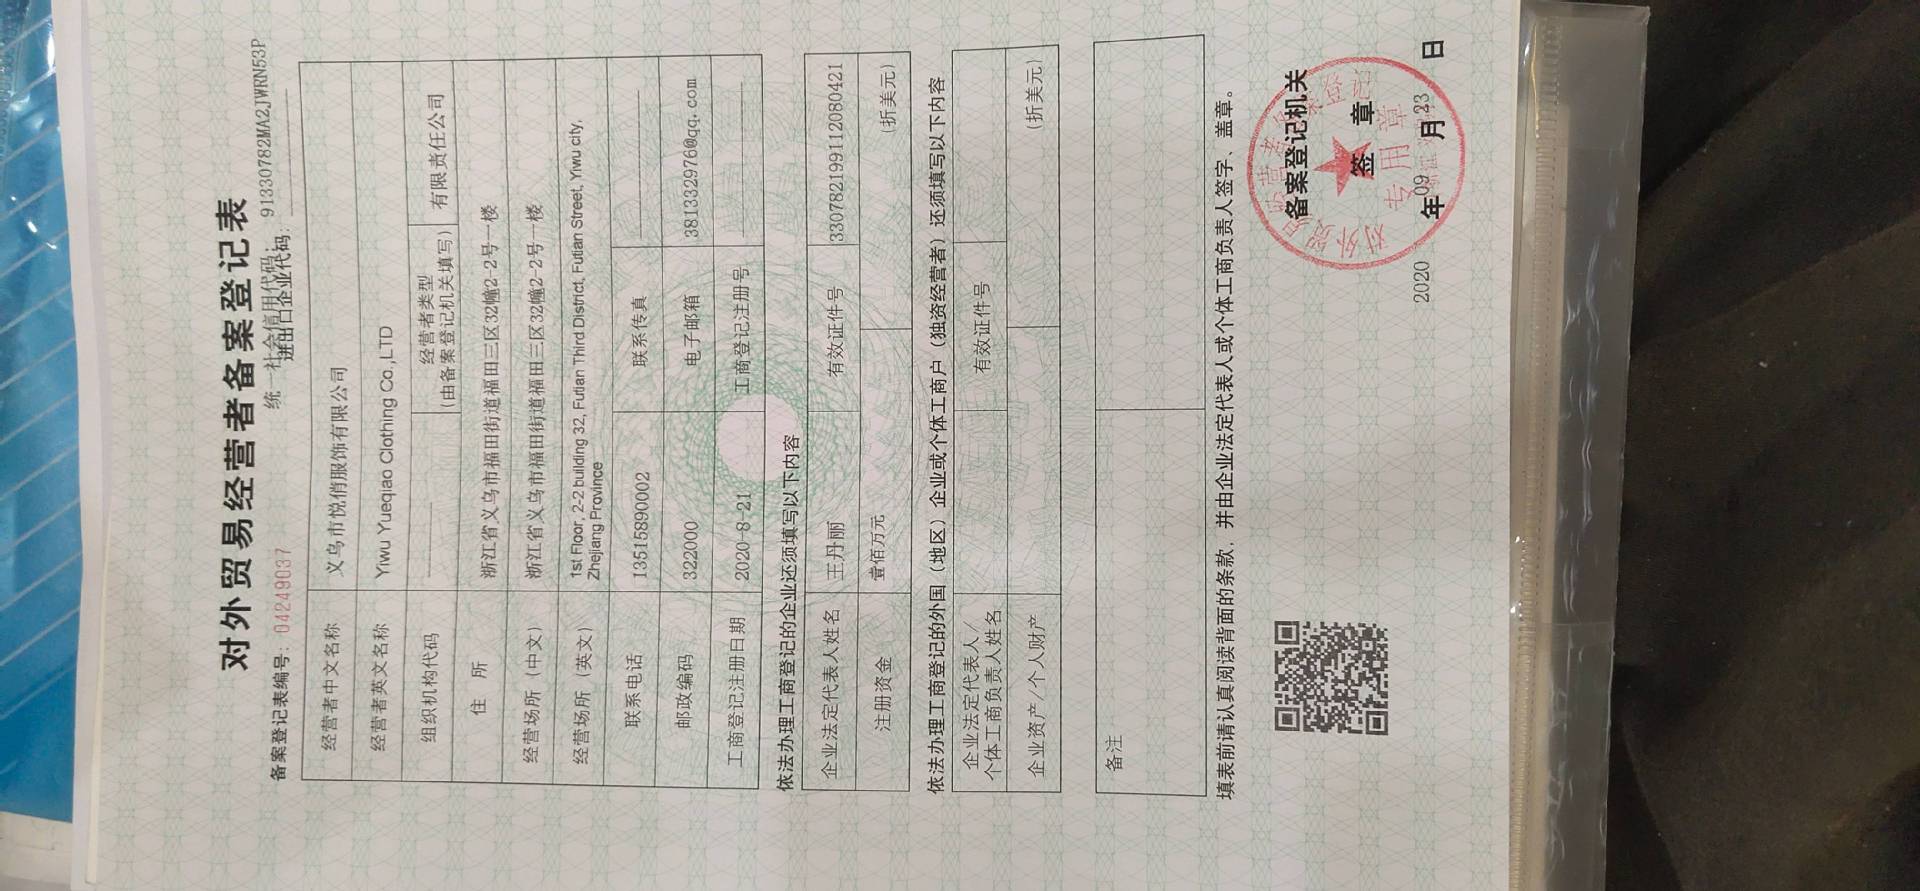 对外贸易经营者备案登记表
统一社会信用代码: 91330782MA2JWRN53P
备案登记表编号: 04249037
进出口企业代码:
经营者中文名称 义乌市悦俏服饰有限公司
经营者英文名称 Yiwu Yueqiao Clothing Co.,LTD
组织机构代码 经营者类型 (由备案登记机关填写) 有限责任公司
住 所 浙江省义乌市福田街道福田三区32幢2-2号一楼
经营场所（中文） 浙江省义乌市福田街道福田三区32幢2-2号一楼
经营场所（英文） 1st Floor, 2-2 building 32, Futian Third District, Futian Street, Yiwu city,
Zhejiang Province
联系电话 13515890002 联系传真
邮政编码 322000 电子邮箱 381332976@qq.com
工商登记注册日期 2020-8-21 工商登记注册号
依法办理工商登记的企业还须填写以下内容
企业法定代表人姓名 王丹丽 有效证件号 330782199112080421
注册资金 壹佰万元 (折美元)
依法办理工商登记的外国（地区）企业或个体工商户（独资经营者）还须填写以下内容
企业法定代表人/
个体工商负责人姓名 有效证件号
企业资产/个人财产 (折美元)
备注
填表前请认真阅读背面的条款，并由企业法定代表人或个体工商负责人签字、盖章。
备案登记机关
签 章
专用章
2020 年 09 月 23 日